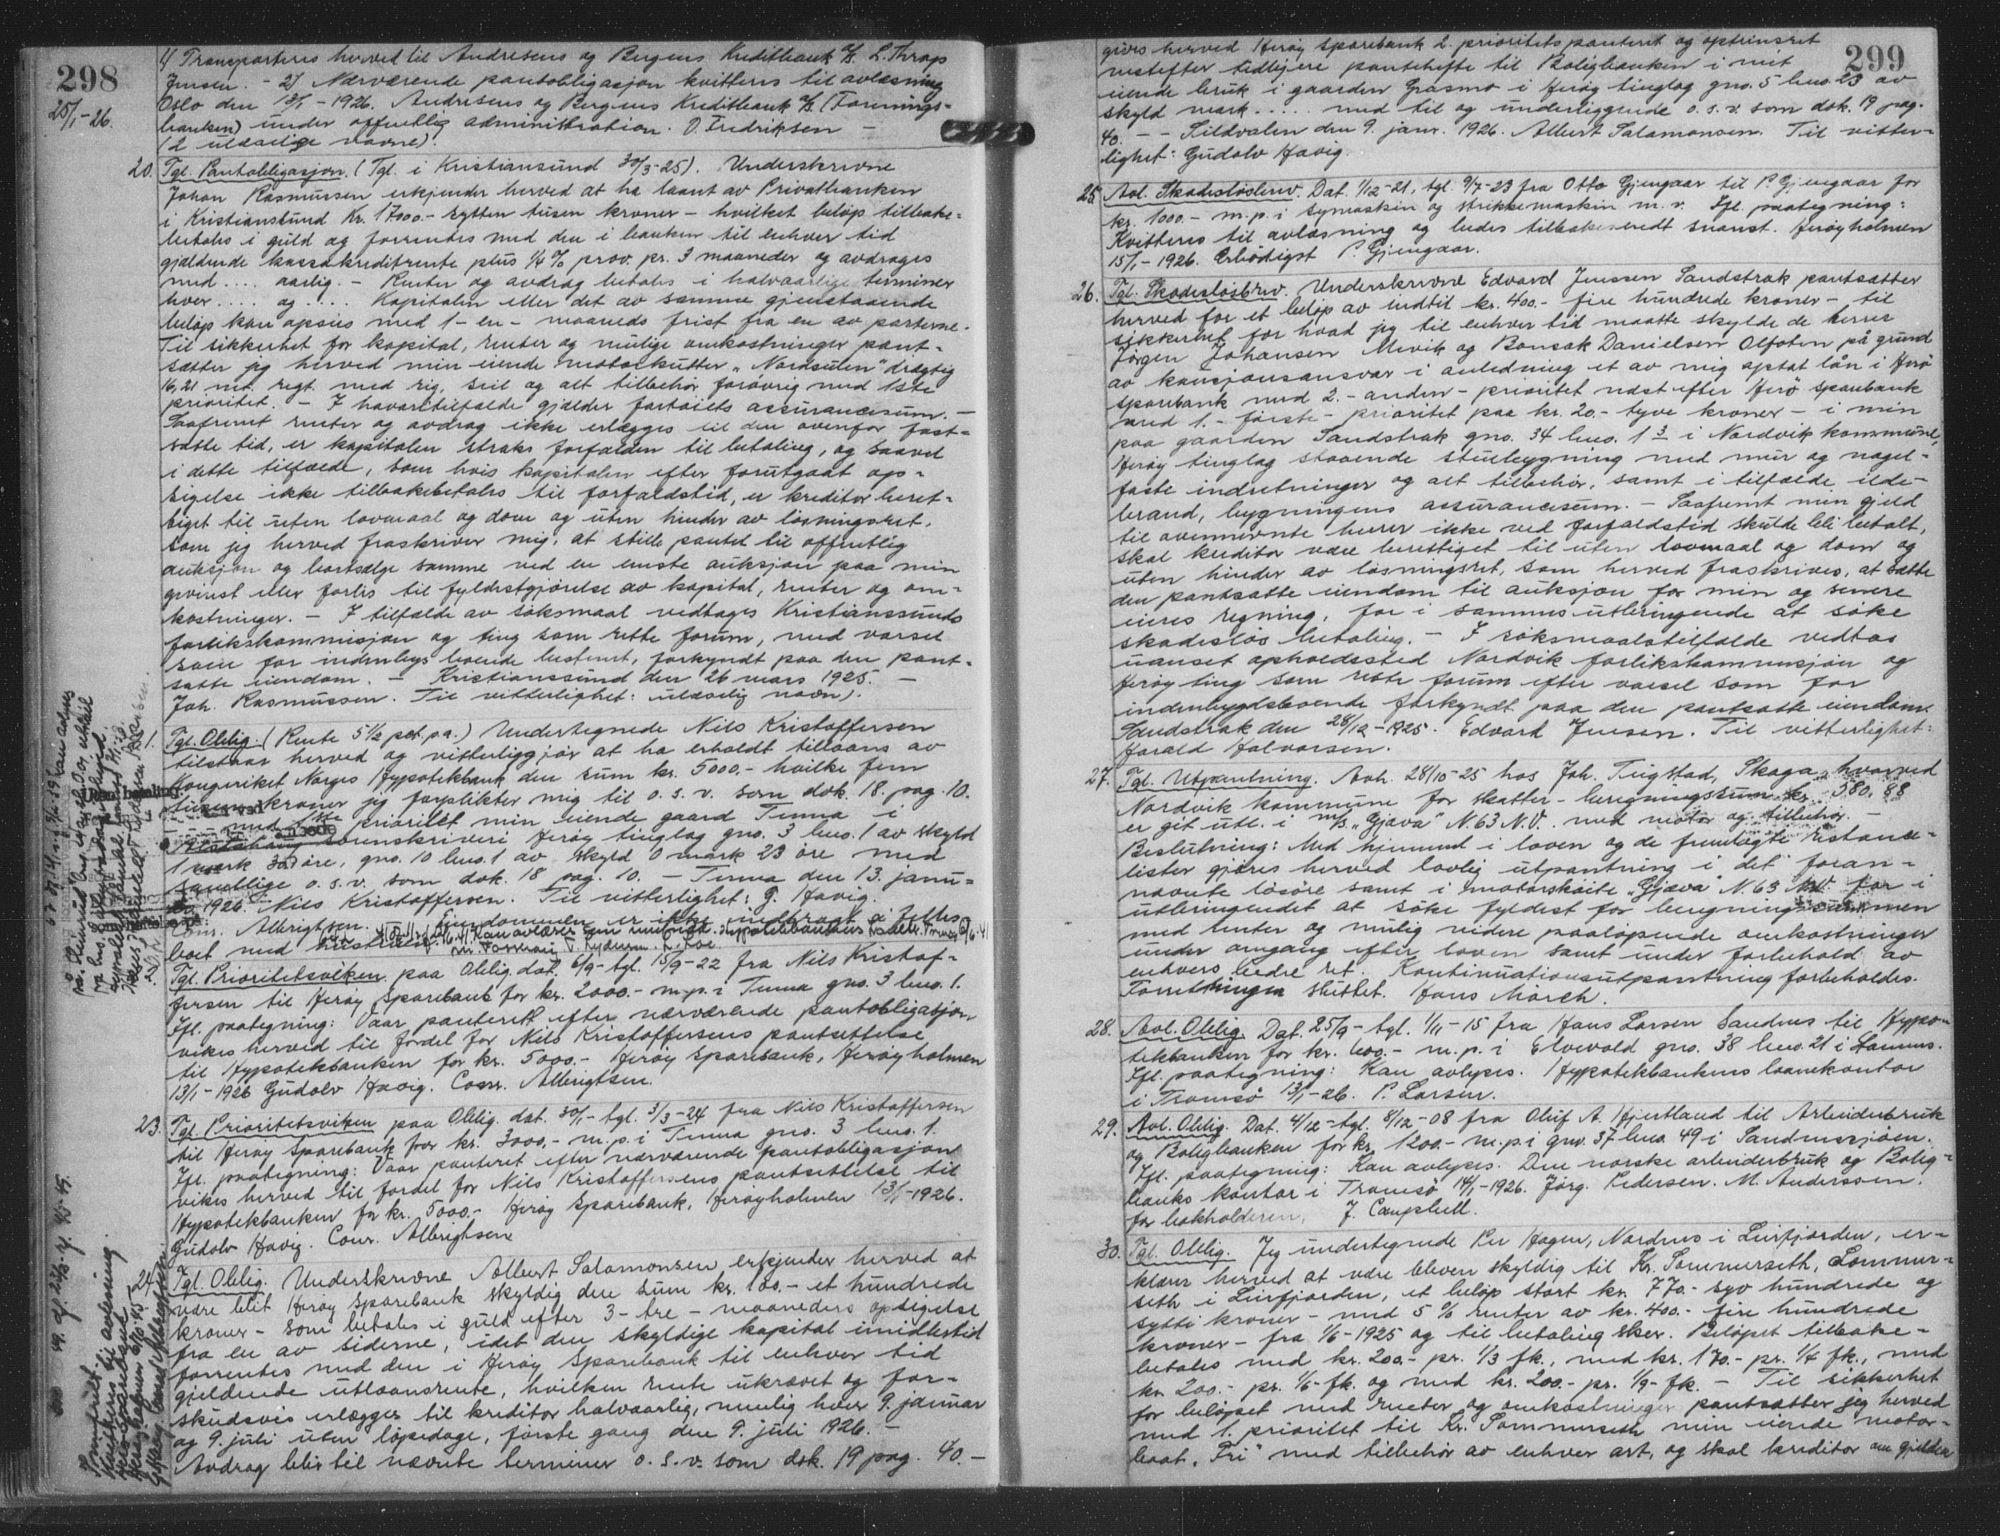 298
25/1-26.
1) Transporteres herved til Andresens og Bergens Kreditbank A/S. L. Thrap
Jensen. - 2) Nærværende pantobligasjon kvitteres til avlæsning
Oslo den 13/1-1926. Andresens og Bergens Kreditbank A/S. (Forenings-
banken) under offentlig administration. O. Fredriksen -
(2 ulæselige navne).
20. Tgl. Pantobligasjon. (Tgl. i Kristiansund 30/3-25). Underskrevne
Johan Rasmussen erkjender herved at ha laant av Privatbanken
i Kristiansund Kr. 17000.- sytten tusen kroner - hvilket beløp tilbake-
betales i guld og forrentes med den i banken til enhver tid
gjældende kassakreditrente plus 1/4 % prov. pr. 3 maaneder og avdrages
med .... aarlig. - Renter og avdrag betales i halvaarlige terminer
hver .... og .... Kapitalen eller det av samme gjenstaaende
beløp kan opsies med 1 - en - maaneds frist fra en av parterne.
Til sikkerhet for kapital, renter og mulige omkostninger pant-
sætter jeg herved min eiende motorkutter "Nordsulen" drægtig
16,21 net. regt. med rig, seil og alt tilbehør forøvrig med 1ste
prioritet. - I havaritilfælde gjælder fartøiets assurancesum. -
Saafremt renter og avdrag ikke erlægges til den ovenfor fast-
satte tid, er kapitalen straks forfalden til betaling, og saavel
i dette tilfælde, som hvis kapitalen efter forutgaat op-
sigelse ikke tilbakebetales til forfaldstid, er kreditor beret-
tiget til uten lovmaal og dom og uten hinder av løsningsret,
som jeg herved fraskriver mig, at stille pantet til offentlig
auksjon og bortsælge samme ved en eneste auksjon paa min
gevinst eller forlis til fyldestgjørelse av kapital, renter og om-
kostninger. - I tilfælde av søksmaal vedtages Kristianssunds
forlikskommisjon og ting som rette forum, med varsel
som for indenbys boende bestemt, forkyndt paa den pant-
satte eiendom. - Kristianssund den 26 mars 1925. -
Joh. Rasmussen. Til vitterlighet: ulæselig navn).
Tgl. Oblig. (Rente 5 1/2 pct. pa.) Undertegnede Nils Kristoffersen
tilstaar herved og vitterliggjør at ha erholdt tillaans av
Kongeriket Norges Hypotekbank den sum kr. 5000.- hvilke fem
tusen kroner jeg forplikter mig til o.s.v. som dok. 18. pag. 10.
- - med 1ste prioritet min eiende gaard Tenna i
sorenskriveri Herøy tinglag gno. 3 bno. 1 av skyld
1 mark 30 øre, gno. 10 bno. 1 av skyld 0 mark 23 øre med
samtlige o.s.v. som dok. 18 pag. 10. - Tenna den 13. janu-
1926. Nils Kristoffersen. Til vitterlighet: G. Havig.
Albrigtsen. Eiendommen er ikke indbragt i fælles
boet med
Tgl. Prioritetsviken paa Oblig. dat. 6/9- tgl. 15/9-22 fra Nils Kristof-
fersen til Herøy Sparebank for kr. 2000.- m.p. i Tenna gno. 3 bno. 1.
Ifl. paategning: Vaar panteret efter nærværende pantobligasjon
vikes herved til fordel for Nils Kristoffersens pantsettelse
til Hypotekbanken for kr. 5000.- Herøy Sparebank, Herøyholmen
13/1-1926 Gudolv Havig. Conr. Albrigtsen.
23. Tgl. Prioritetsviken paa Oblig. dat. 30/1- tgl. 3/3-24 fra Nils Kristoffersen
til Herøy Sparebank for kr. 3000.- m.p. i Tenna gno. 3 bno. 1.
Ifl. paategning: Vaar panteret efter nærværende pantobligasjon
vikes herved til fordel for Nils Kristoffersens pantsettelse til
Hypotekbanken for kr. 5000.- Herøy Sparebank, Herøyholmen 13/1-1926.
Gudolv Havig. Conr. Albrigtsen
24. Tgl. Oblig. Underskrevne Albert Salamonsen, erkjender herved at
være blit Herøy Sparebank skyldig den sum kr. 100.- et hundrede
kroner - som betales i guld efter 3 - tre - maaneders opsigelse
fra en av siderne, idet den skyldige kapital imidlertid
forrentes med den i Herøy Sparebank til enhver tid
gjeldende utlaansrente, hvilken rente ukrævet og for-
skudsvis erlægges til kreditor halvaarlig, nemlig hver 9. januar
og 9. juli uten løpedage, første gang den 9. juli 1926. -
Avdrag blir til nævnte terminer o.s.v. som dok. 19 pag. 40. -
299
gives herved Herøy Sparebank 2. prioritets panteret og optrinsret
næstefter tidligere pantehefte til Boligbanken i mit
eiende bruk i gaarden Gräsmo i Herøy tinglag gno. 5 bno. 23 av
skyld mark .... med til og underliggende o.s.v. som dok. 19 pag.
40. - - Sildvalen den 9. janr. 1926. Albert Salamonsen. Til vitter-
lighet: Gudolv Havig.
25. Avl. Skadesløsbrev. Dat. 1/12-21, tgl. 9/7-23 fra Otto Gjengaar til P. Gjengaar for
kr. 1000.- m.p. i symaskin og strikkemaskin m.v. Ifl. paategning:
Kvitteres til avlæsning og bedes tilbakesendt snarest. Herøyholmen
15/1-1926. Erbødigst P. Gjengaar.
26. Tgl. Skadesløsbrev. Underskrevne Edvard Jensen Sandstrak pantsætter
herved for et beløp av indtil kr. 400.- fire hundrede kroner - til
sikkerhet for hvad jeg til enhver tid maatte skylde de herrer
Jørgen Johansen Mevik og Bonsak Danielsen Olfoten på grund
av kausjonsansvar i anledning et av mig optat lån i Herø
sparebank med 2. - anden - prioritet næst efter Herø Sparebank
med 1. - første - prioritet paa kr. 20.- tyve kroner - i min
paa gaarden Sandstrak gno. 34 bno. 1 3 i Nordvik kommune,
Herøy tinglag staaende stuebygning med mur og nagel-
faste indretninger og alt tilbehør, samt i tilfælde ilde-
brand, bygningens assurancesum. - Saafremt min gjeld
til ovennævnte herrer ikke ved forfaldstid skulde bli betalt,
skal kreditor være berettiget til uten lovmaal og dom og
uten hinder av løsningsret, som herved fraskrives, at sætte
den pantsatte eiendom til auksjon for min og senere
eieres regning, for i sammes utbringende at søke
skadesløs betaling. - I søksmaalstilfælde vedtas
uanset opholdssted Nordvik forlikskommisjon og
Herøy ting som rette forum efter varsel som for
indenbygdsboende forkyndt paa den pantsatte eiendom.
Sandstrak den 28/12-1925. Edvard Jensen. Til vitterlighet:
Harald Halvorsen.
27. Tgl. Utpantning. Avh. 28/10-25 hos Joh. Tingstad, Skaga, hvorved
Nordvik kommune for skatter - beregningssum kr. 580,88
er git utl. i m/s "Gjæva" N. 63 N.V. med motor og tilbehør. -
Beslutning: Med hjemmel i loven og de fremlagte restanse-
lister gjøres herved lovlig utpantning i det foran-
nævnte løsøre samt i motorskøite "Gjæva" N. 63 N.V. for i
utbringendet at søke fyldest for beregningssummen
med renter og mulig videre paaløpende omkostninger
under omgang efter loven samt under forbehold av
enhvers bedre ret. Kontinuationsutpantning forbeholdes.
Forretningen sluttet. Hans Mørch.
28. Avl. Oblig. Dat. 25/9- tgl. 1/11-15 fra Hans Larsen Sandnes til Hypo-
tekbanken for kr. 600.- m.p. i Elvevold gno. 38 bno. 21 i Stamnes.
Ifl. paategning: Kan avlyses. Hypotekbankens laanekontor
i Tromsø 13/1-26. P. Larsen.
29. Avl. Oblig. Dat. 4/12- tgl. 8/12-08 fra Oluf A. Hjertland til Arbeiderbruk
og Boligbanken for kr. 1200.- m.p. i gno. 37 bno. 49 i Sandnessjøen.
Ifl. paategning: Kan avlyses. Den norske arbeiderbruk og Bolig-
banks kontor i Tromsø 14/1-1926. Jørg. Pedersen. M. Anderssen.
for bokholderen, J. Campbell.
30. Tgl. Oblig. Jeg undertegnede Per Hagen, Nordnes i Leirfjorden, er-
klærer herved at være bleven skyldig til Kr. Sommerseth, Sommer-
seth i Leirfjorden, et beløp stort kr. 770.- syv hundrede og
sytti kroner - med 5 % renter av kr. 400.- fire hundrede
kroner - fra 1/6-1925 og til betaling sker. Beløpet tilbake-
betales med kr. 200.- pr. 1/3 fk., med kr. 170.- pr. 1/4 fk., med
kr. 200.- pr. 1/6- fk. og med kr. 200.- pr. 1/9- fk. - Til sikkerhet
for beløpet med renter og omkostninger pantsætter jeg herved
med 1. prioritet til Kr. Sommerseth min eiende motor-
baat "Fri" med tilbehør av enhver art, og skal kreditor om gjelden